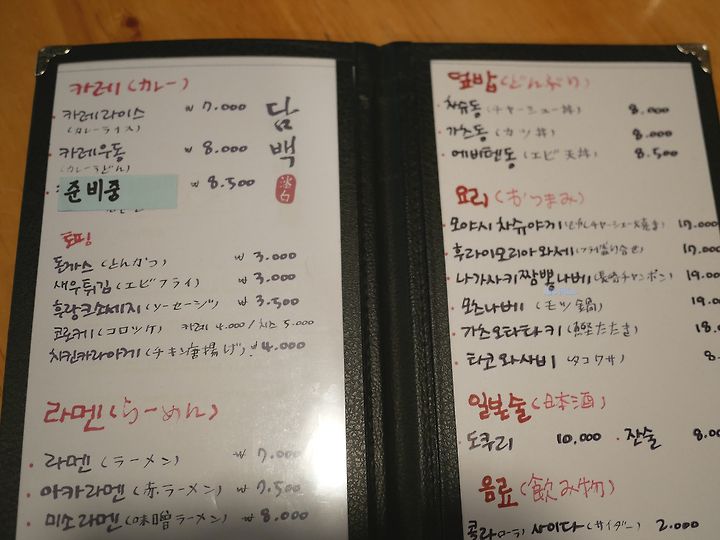 카레 (カレー)
카레라이스 ₩ 7.000
(カレーライス)
카레우동 ₩ 8.000
(カレーうどん)
준비중 ₩ 8.500
담백
淡白
토핑
돈까스 (とんかつ) ₩ 3.000
새우튀김 (エビフライ) ₩ 3.000
후랑크소세지 (ソーセージ) ₩ 3.500
코로케 (コロッケ) 카레 4.000 / 치즈 5.000
치킨카라아게 (チキン唐揚げ) ₩ 4.000
라멘 (らーめん)
라멘 (ラーメン) ₩ 7.000
아카라멘 (赤ラーメン) ₩ 7.500
미소라멘 (味噌ラーメン) ₩ 8.000
덮밥 (どんぶり)
차슈동 (チャーシュー丼) 8.000
가츠동 (カツ丼) 8.000
에비텐동 (エビ天丼) 8.500
요리 (おつまみ)
모야시 차슈야끼 17.000
후라이모리아와세 (フライ盛り合せ) 17.000
나가사키짬뽕나베 (長崎チャンポン) 19.00
모츠나베 (モツ鍋) 19.0
가츠오타타키 (鰹たたき) 18.
타코와사비 (タコワサ) 8.
일본술 (日本酒)
도쿠리 10,000 잔술 8.0
음료 (飲み物)
콜라 (コーラ) 사이다 (サイダー) 2.000